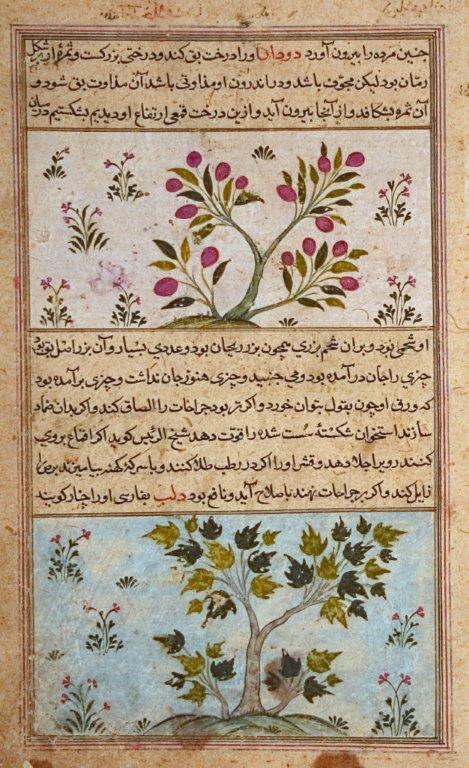 چنین مرده را بیرون آورد دردار اورا درخت بق کند و درختی بزرکست و ثمرهٔ او بشکل
رمان بود لیکن مجوف باشد و در اندرون او
آن ثمره بشکافد و از آنجا بیرون آید و ازین درخت ارتفاع او دیدیم بشکستیم در میان
او تخمی بود و بران تخم بزری همچون بزر ریحان بود و عددی بسیار و آن بزر
چیزی را جان در آمده بود و می جنبید و چیزی هنوز جان نداشت و چیزی برآمده بود
که ورق او چون بقول بتوان خورد و اکر تر بود جراحات را الصاق کند و اکر بدان ضماد
سازند استخوان شکسته سست شده را قوت دهد شیخ الرئیس کوید اکر اقماع بر روی
کنند رو را جلا دهد و قشر او را اکر در رطب طلا کنند و با سرکه کهنه بیامیزند برص را
زایل کند و اکر بر جراحات نهند باصلاح آید و نافع بود دلب بفارسی او را چنار کویند